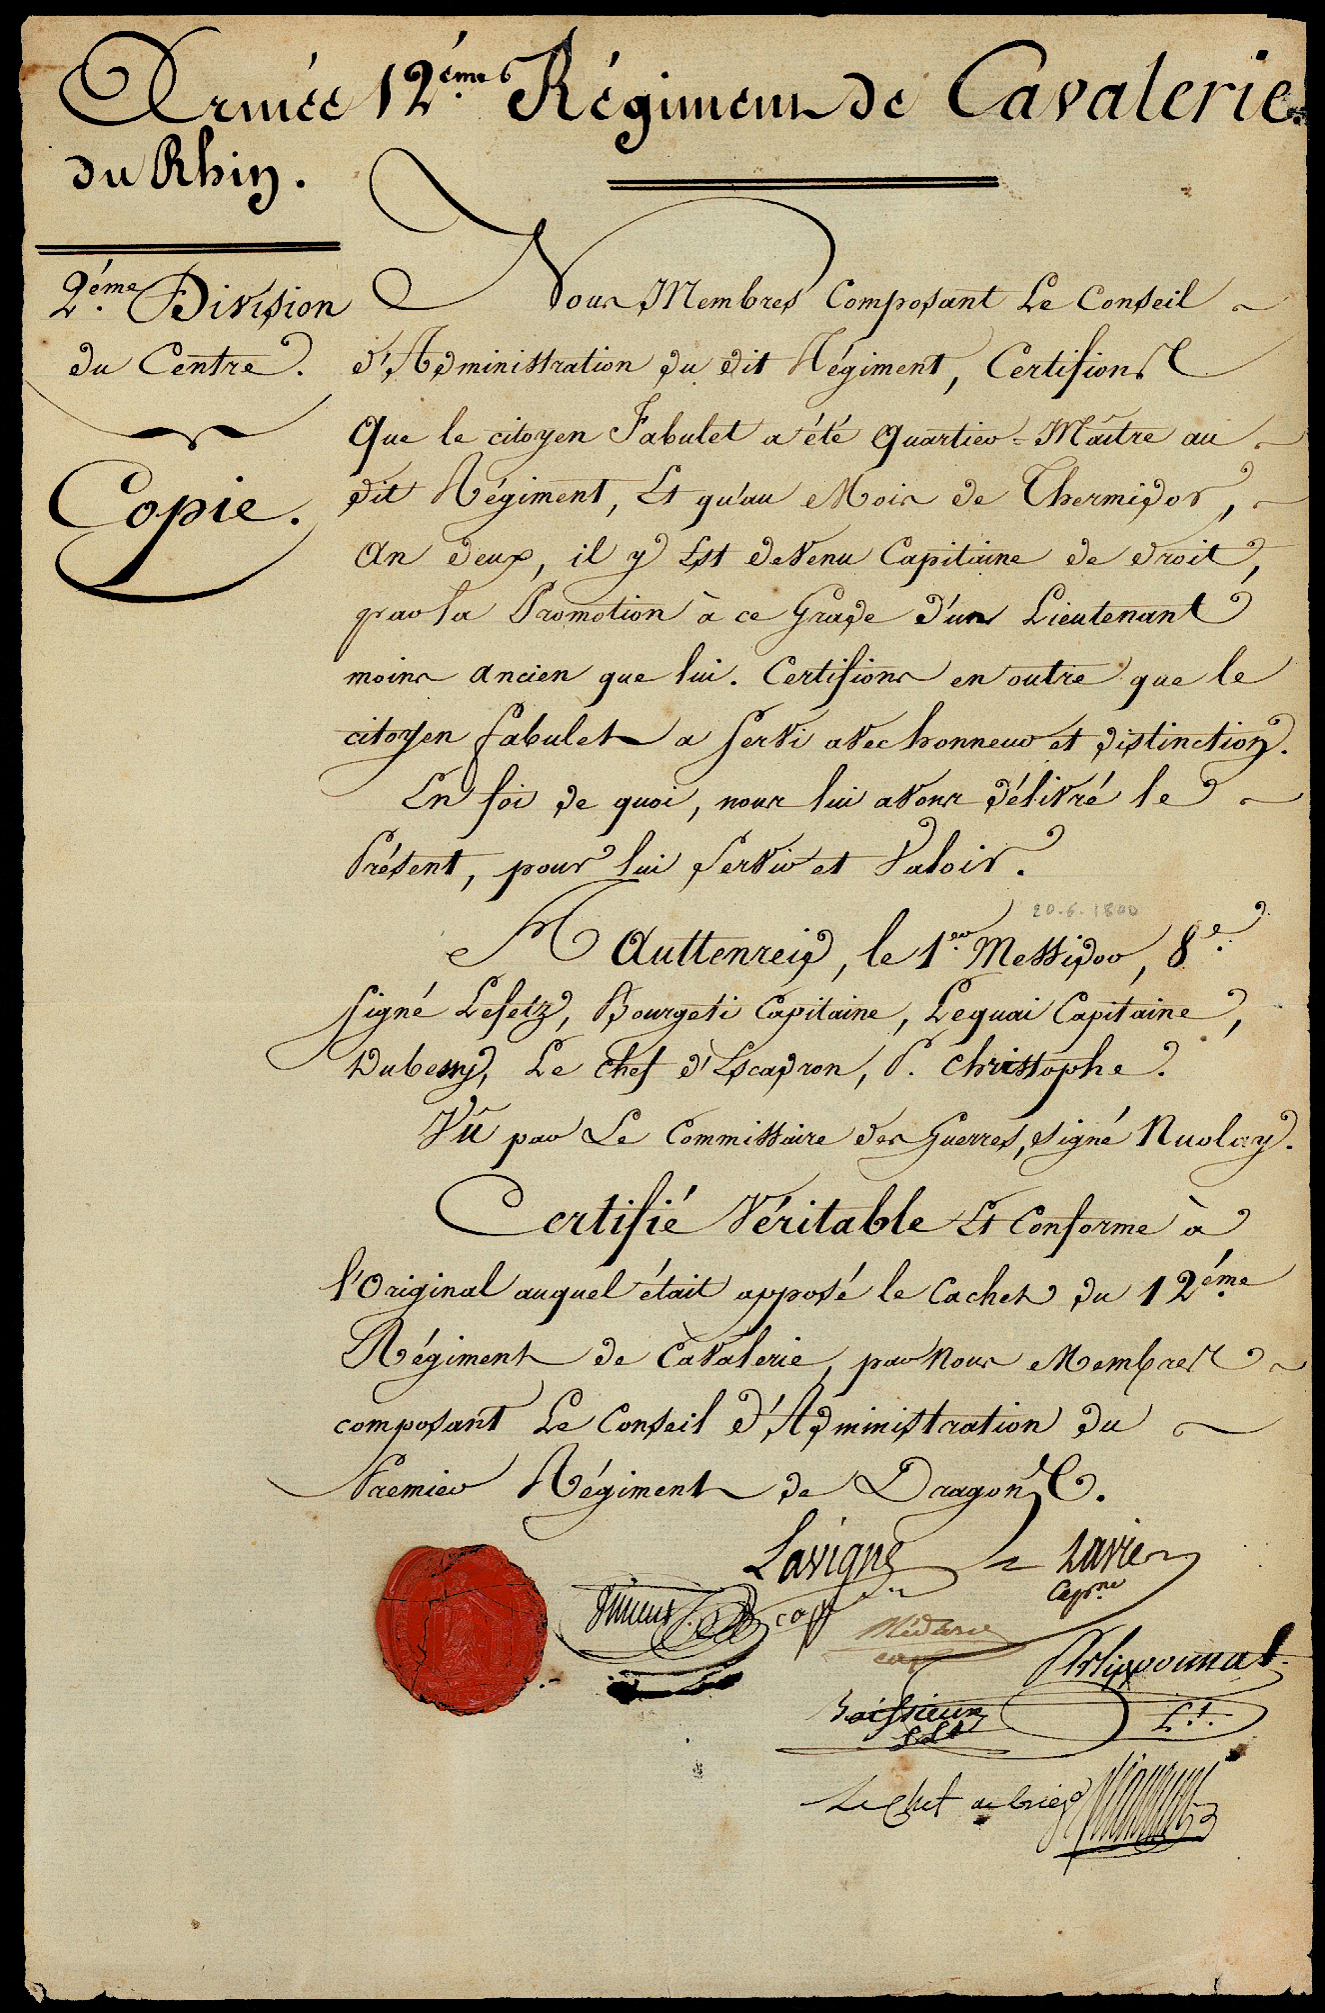 Armée
du Rhin.
2ème Division
du Centre.
Copie.
12ème Régiment de Cavalerie.
Nous Membres Composant Le Conseil
d'Administration du dit Régiment, Certifions
Que le citoyen Fabulet a été Quartier-Maitre au
dit Régiment, Et qu'au Mois de Thermidor,
An deux, il y Est devenu Capitaine de droit,
par la Promotion à ce Grade d'un Lieutenant
moins Ancien que lui. Certifions en outre que le
citoyen fabulet a servi avec honneur et distinction.
En foi de quoi, nous lui avons délivré le
Présent, pour lui servir et Valoir.
A Auttenreid, le 1er Messidor, 8e.
20.6.1800
signé Lefetz, Bourgeti Capitaine, Lequai Capitaine,
Dubessy, Le Chef d'Escadron, P. Christophe.
Vû par Le Commissaire des Guerres, signé Nuolay.
Certifié Véritable Et Conforme à
l'Original auquel était apposé le Cachet du 12ème
Régiment de Cavalerie, par Nous Membres
composant Le Conseil d'Administration du
Premier Régiment de Dragons.
Lavigne
cap
Lavie
Capne
cap
Philipponnat
Lt.
Boissieux
s Lt
Le Chef de brigd